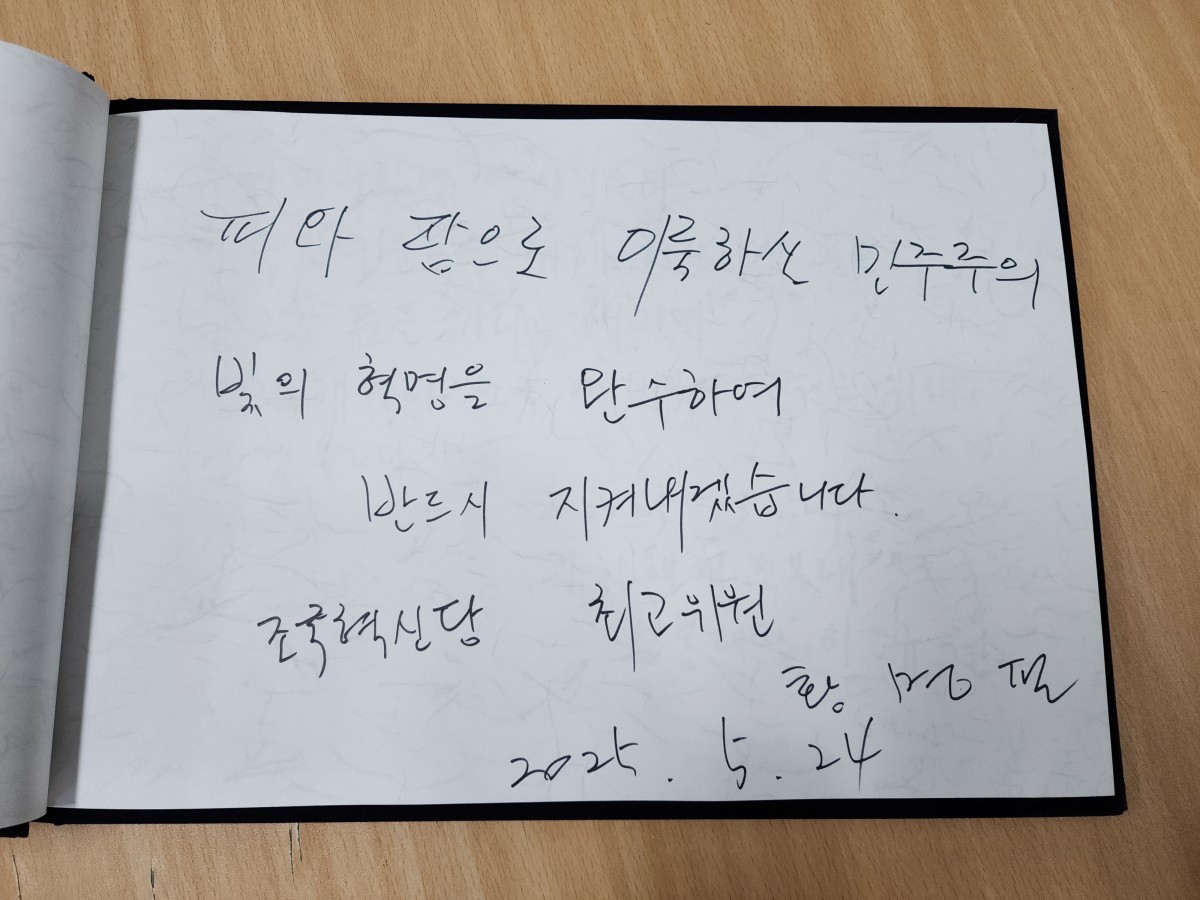 피와 땀으로 이룩하신 민주주의
빛의 혁명을 완수하여
반드시 지켜내겠습니다.
조국혁신당 최고위원
황명필
2025. 5. 24